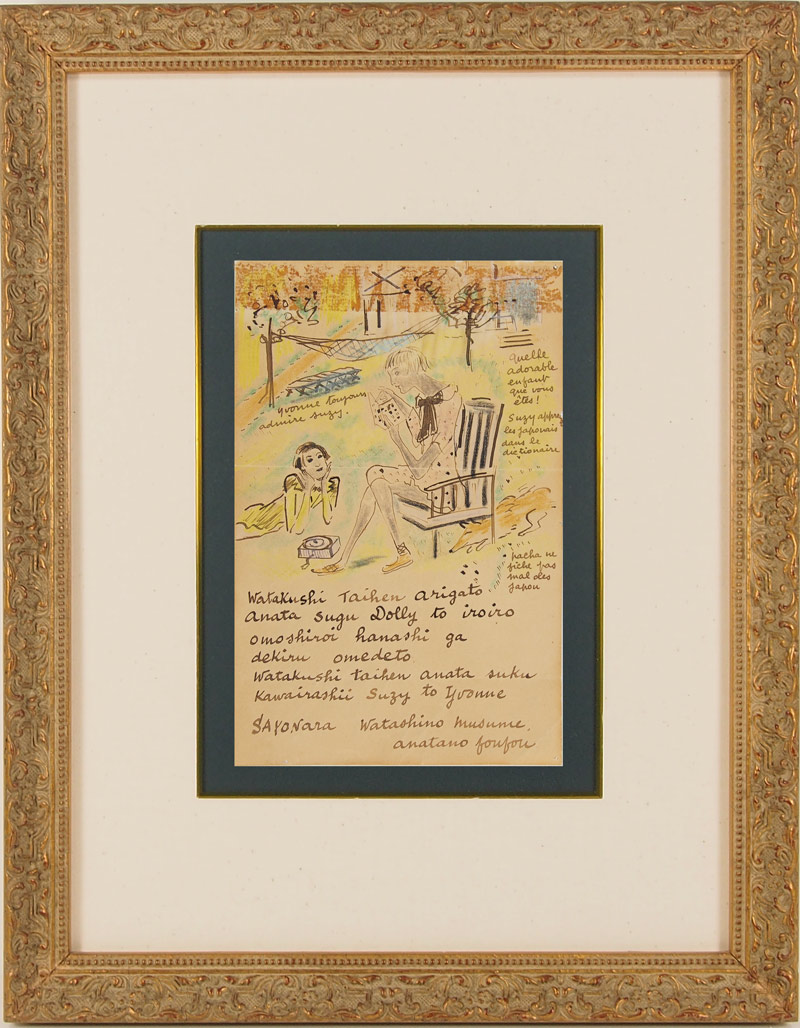 Yvonne toujours
admire suzy.
quelle
adorable
enfant
que vous
êtes !
Suzy apprend
les japonais
dans le
dictionaire
pacha ne
fiche pas
mal des
Japon
Watakushi Taihen arigato
Anata sugu Dolly to iroiro
omoshiroi hanashi ga
dekiru omedeto
Watakushi taihen anata suku
Kawairashii Suzy to Yvonne
SAYONara Watashino musume.
anatano foufou